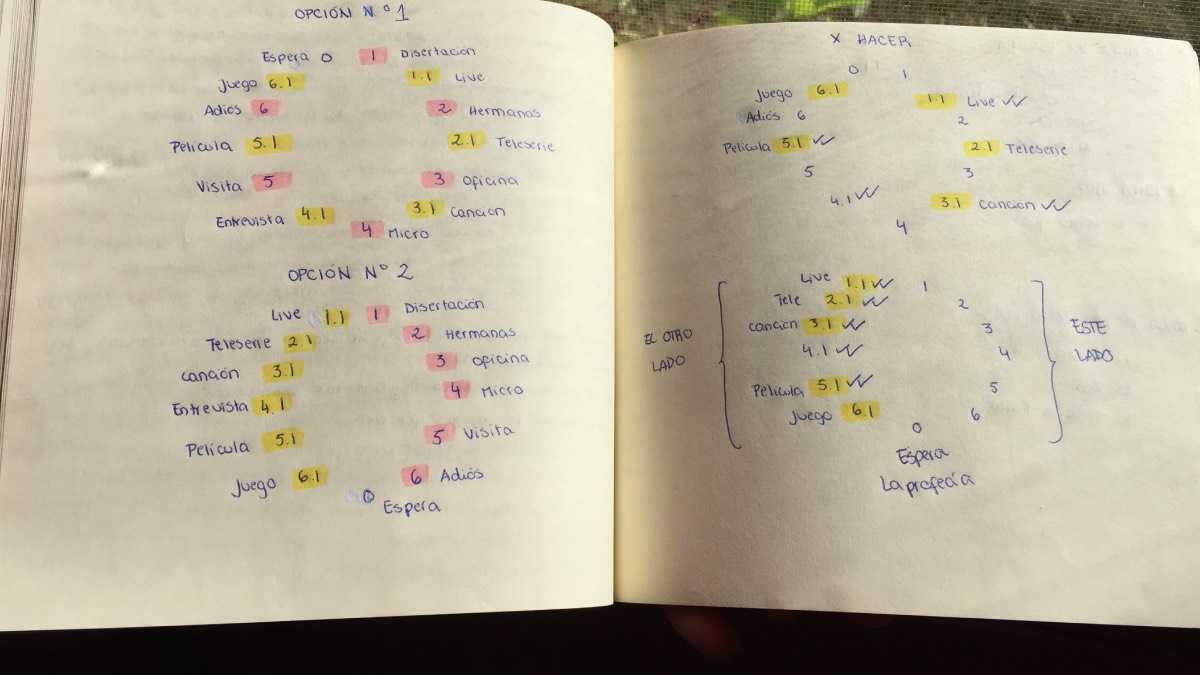 OPCIÓN N.º 1
Espera 0 1 Disertación
Juego 6.1 1.1 Live
Adiós 6 2 Hermanas
Película 5.1 2.1 Teleserie
Visita 5 3 Oficina
Entrevista 4.1 3.1 Canción
4 Micro
OPCIÓN Nº 2
Live 1.1 1 Disertación
Teleserie 2.1 2 Hermanas
Canción 3.1 3 Oficina
Entrevista 4.1 4 Micro
Película 5.1 5 Visita
Juego 6.1 6 Adiós
0 Espera
X HACER
0 1
Juego 6.1 1.1 Live ✓✓
Adiós 6 2
Película 5.1 ✓✓ 2.1 Teleserie
5 3
4.1 ✓✓ 3.1 Canción ✓✓
4
Live 1.1 ✓✓ 1
Tele 2.1 ✓✓ 2
Canción 3.1 ✓✓ 3
EL OTRO LADO
4.1 ✓✓ 4
ESTE LADO
Película 5.1 ✓✓ 5
Juego 6.1 6
0
Espera
La profecía